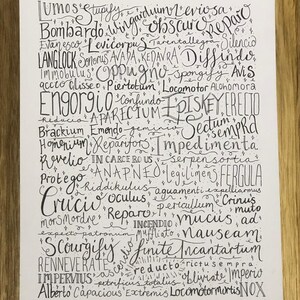 Lumos Stupefy Wingardium Leviosa
Bombardo obscuro Reparo
Evanesco Levicorpus Ferenallega silencio
LANGLOCK Sonorus AVADA KEDAVRA Diffindo
Immobulus Oppugno spongify Avis
accio Glisseo Piertotum Locomotor Alohomora
Engorgio Confundo EPISKEY ERECTO
Reducio APARECIUM Sectum
Brackium Emendo geminio sempra
Homenum Reparifors Impedimenta
Revelio INCARCEROUS serpensortia
Protego ANAPNEO legilimens FERGULA
Riddikulus aquamenti expelliarmus
Crucio oculus periculum Crinus
morsMordre Reparo mucus ad muto
expecto patronum INCENDIO nauseam
Scourgify finite Incantartum
RENNEVERATE ascendio reducto rictusempra
IMPERVIUS petrificus totalus obliviate Imperio
Alberto Capacious Extremis Locomotormortis NOX